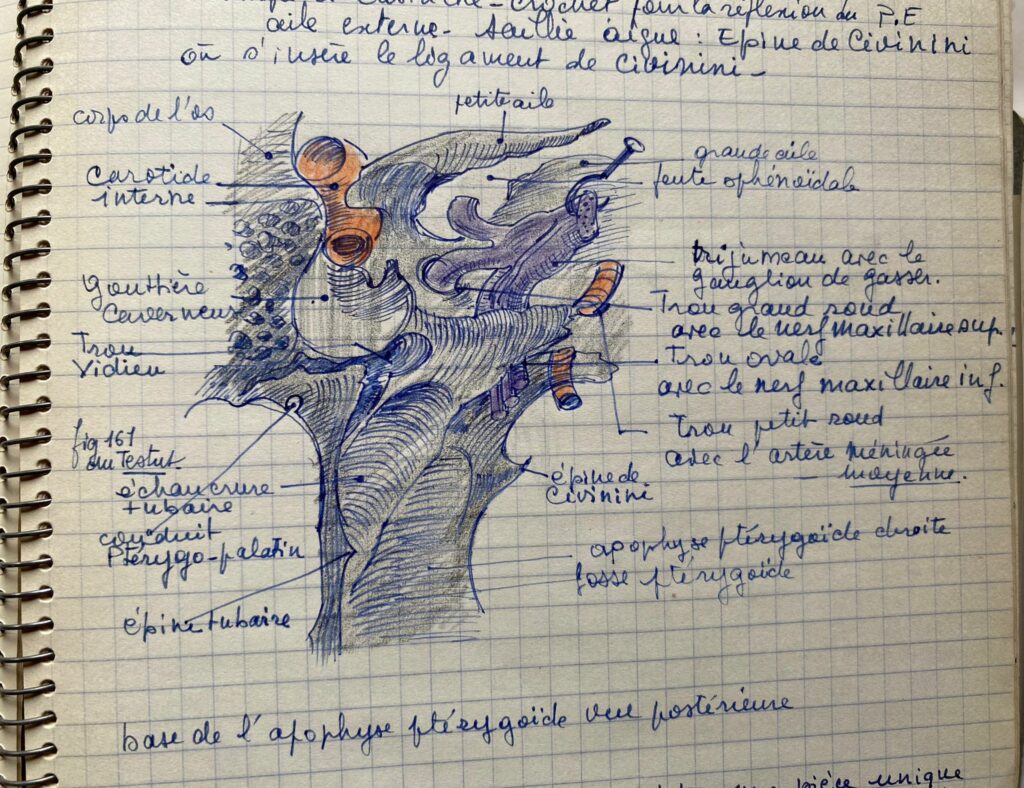 crochet pour la réflexion du P.E
aile externe - Saillie aigue : Epine de Civinini
où s'insère le logament de Civinini -
corps de l'os
petite aile
Carotide
interne
grande aile
fente sphénoïdale
trijumeau avec le
ganglion de gasser.
Gouttière
Caverneus
Trou grand rond
avec le nerf maxillaire sup.
Trou
Vidien
Trou ovale
avec le nerf maxillaire inf.
Trou petit rond
avec l'artère méningée
moyenne.
fig 161
du Testut
échancrure
tubaire
épine de
Civinini
conduit
Ptérygo-palatin
apophyse ptérygoïde droite
fosse ptérygoïde
épine tubaire
base de l'apophyse ptérygoïde vue postérieure
pièce unique